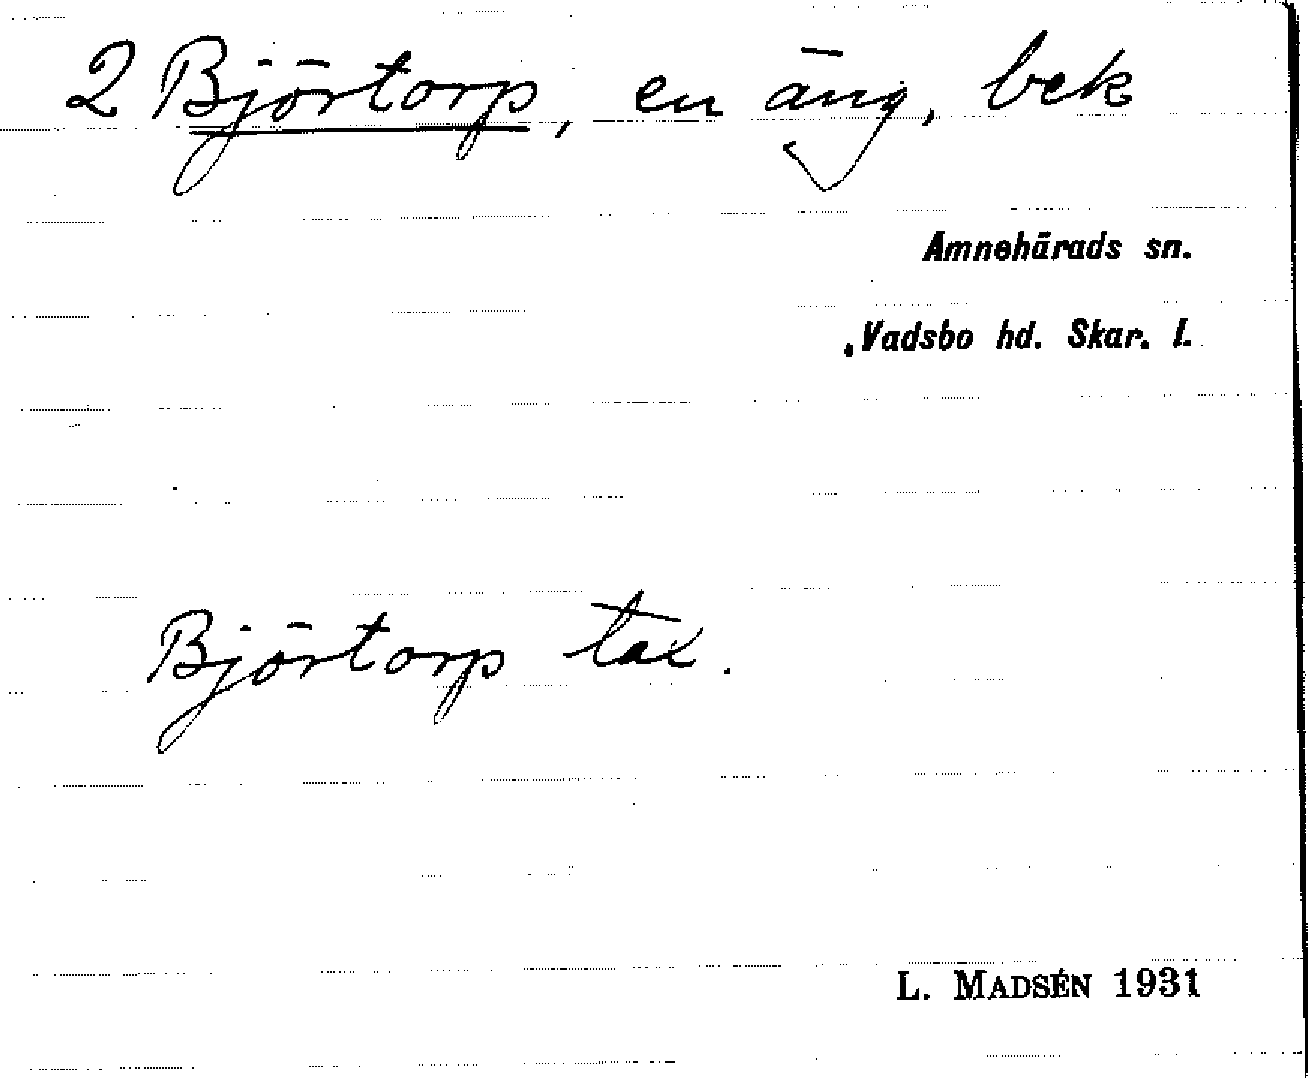 2 Björtorp, en äng, bek
Amnehärads sn.
Vadsbo hd. Skar. l.
Björtorp tax.
L. MADSÉN 1931